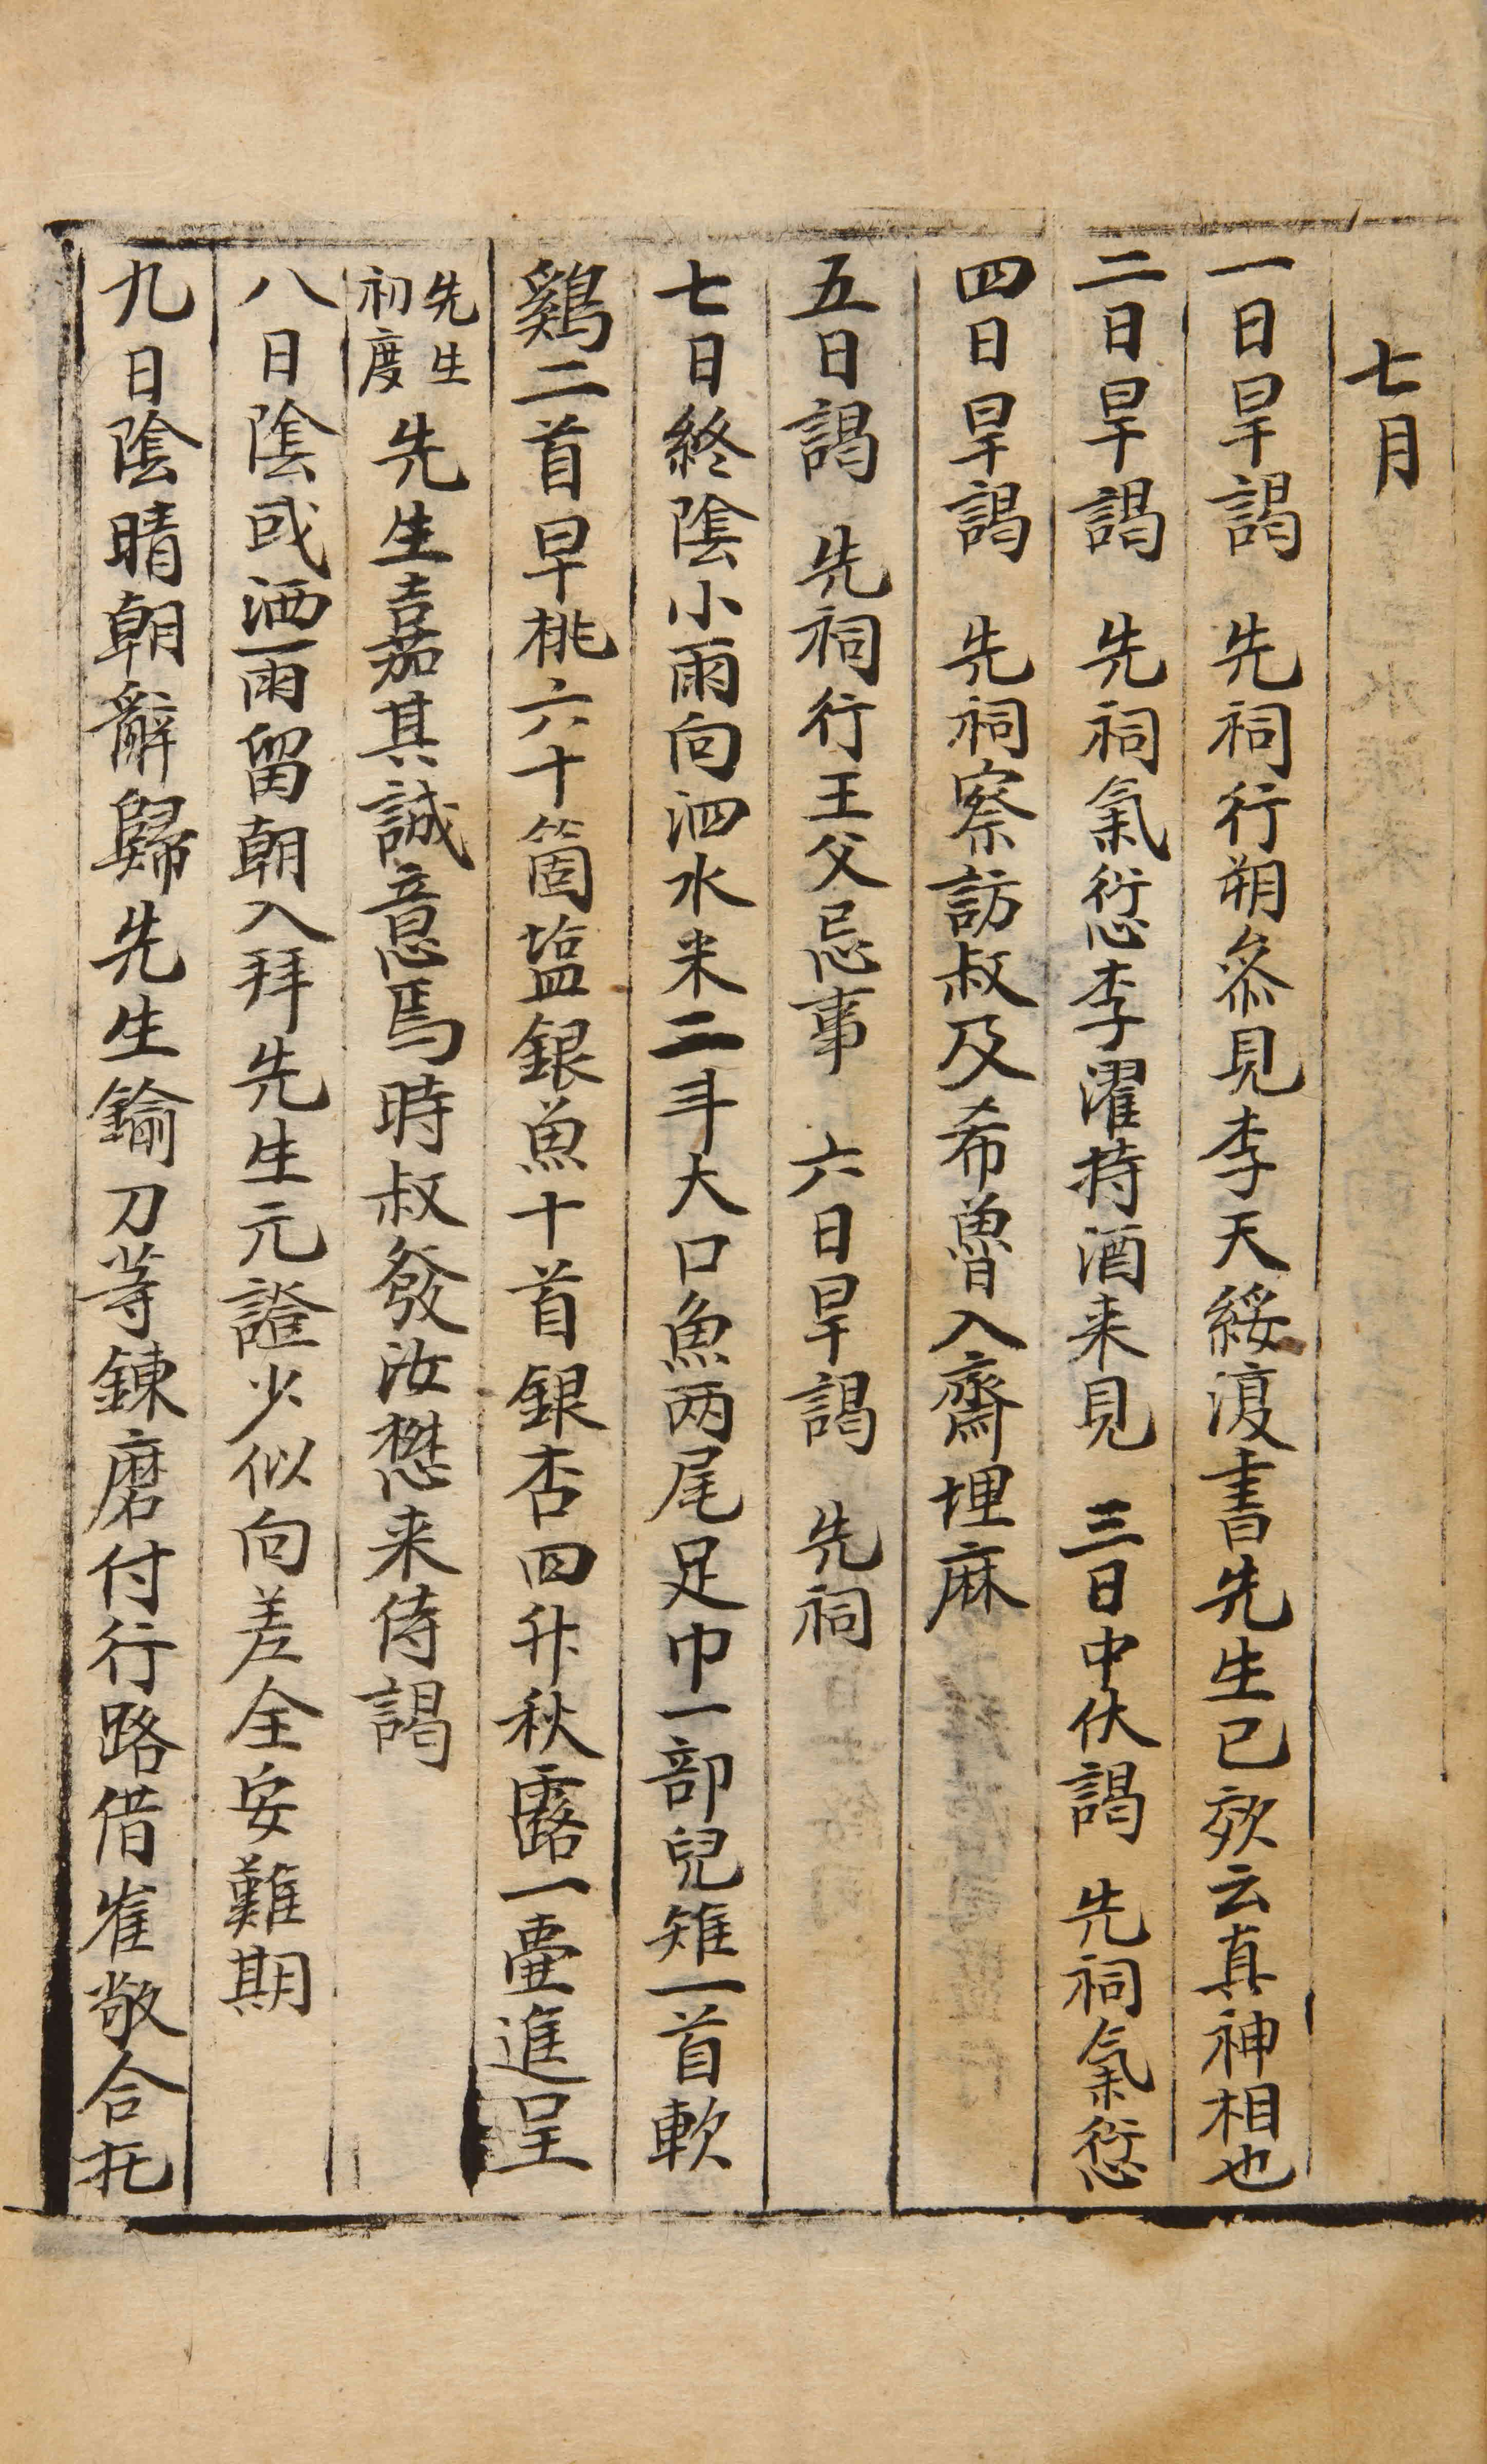 七月
一日旱謁　先祠行朔叅見李天綏渡書先生已效云真神相也
二日旱謁　先祠氣愆李濯持酒来見　三日中伏謁　先祠氣愆
四日旱謁　先祠察訪叔及希魯入齋埋麻
五日謁　先祠行王父忌事　六日旱謁　先祠
七日終陰小雨向泗水米二斗大口魚两尾足巾一部兒雉一首軟
鷄二首早桃六十箇塩銀魚十首銀杏四升秋露一壷進呈
先生初度　先生嘉其誠意焉時叔發汝懋来侍謁
八日陰或洒雨留朝入拜先生元證少似向差全安難期
九日陰晴朝辭歸先生鍮刀等鍊磨付行路借崔敬合托